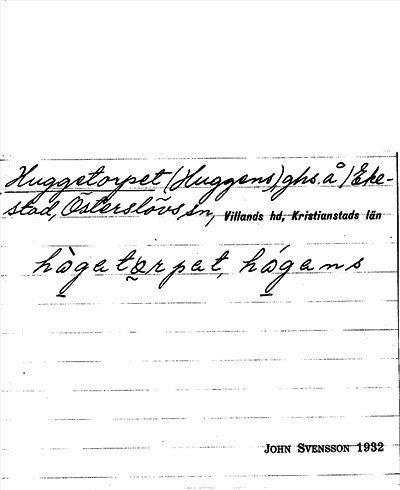 Huggetorpet (Huggens), ghs. å /Eke-
stad, Österslövs sn, Villands hd, Kristianstads län
hàgatœrpat, hágans
JOHN SVENSSON 1932